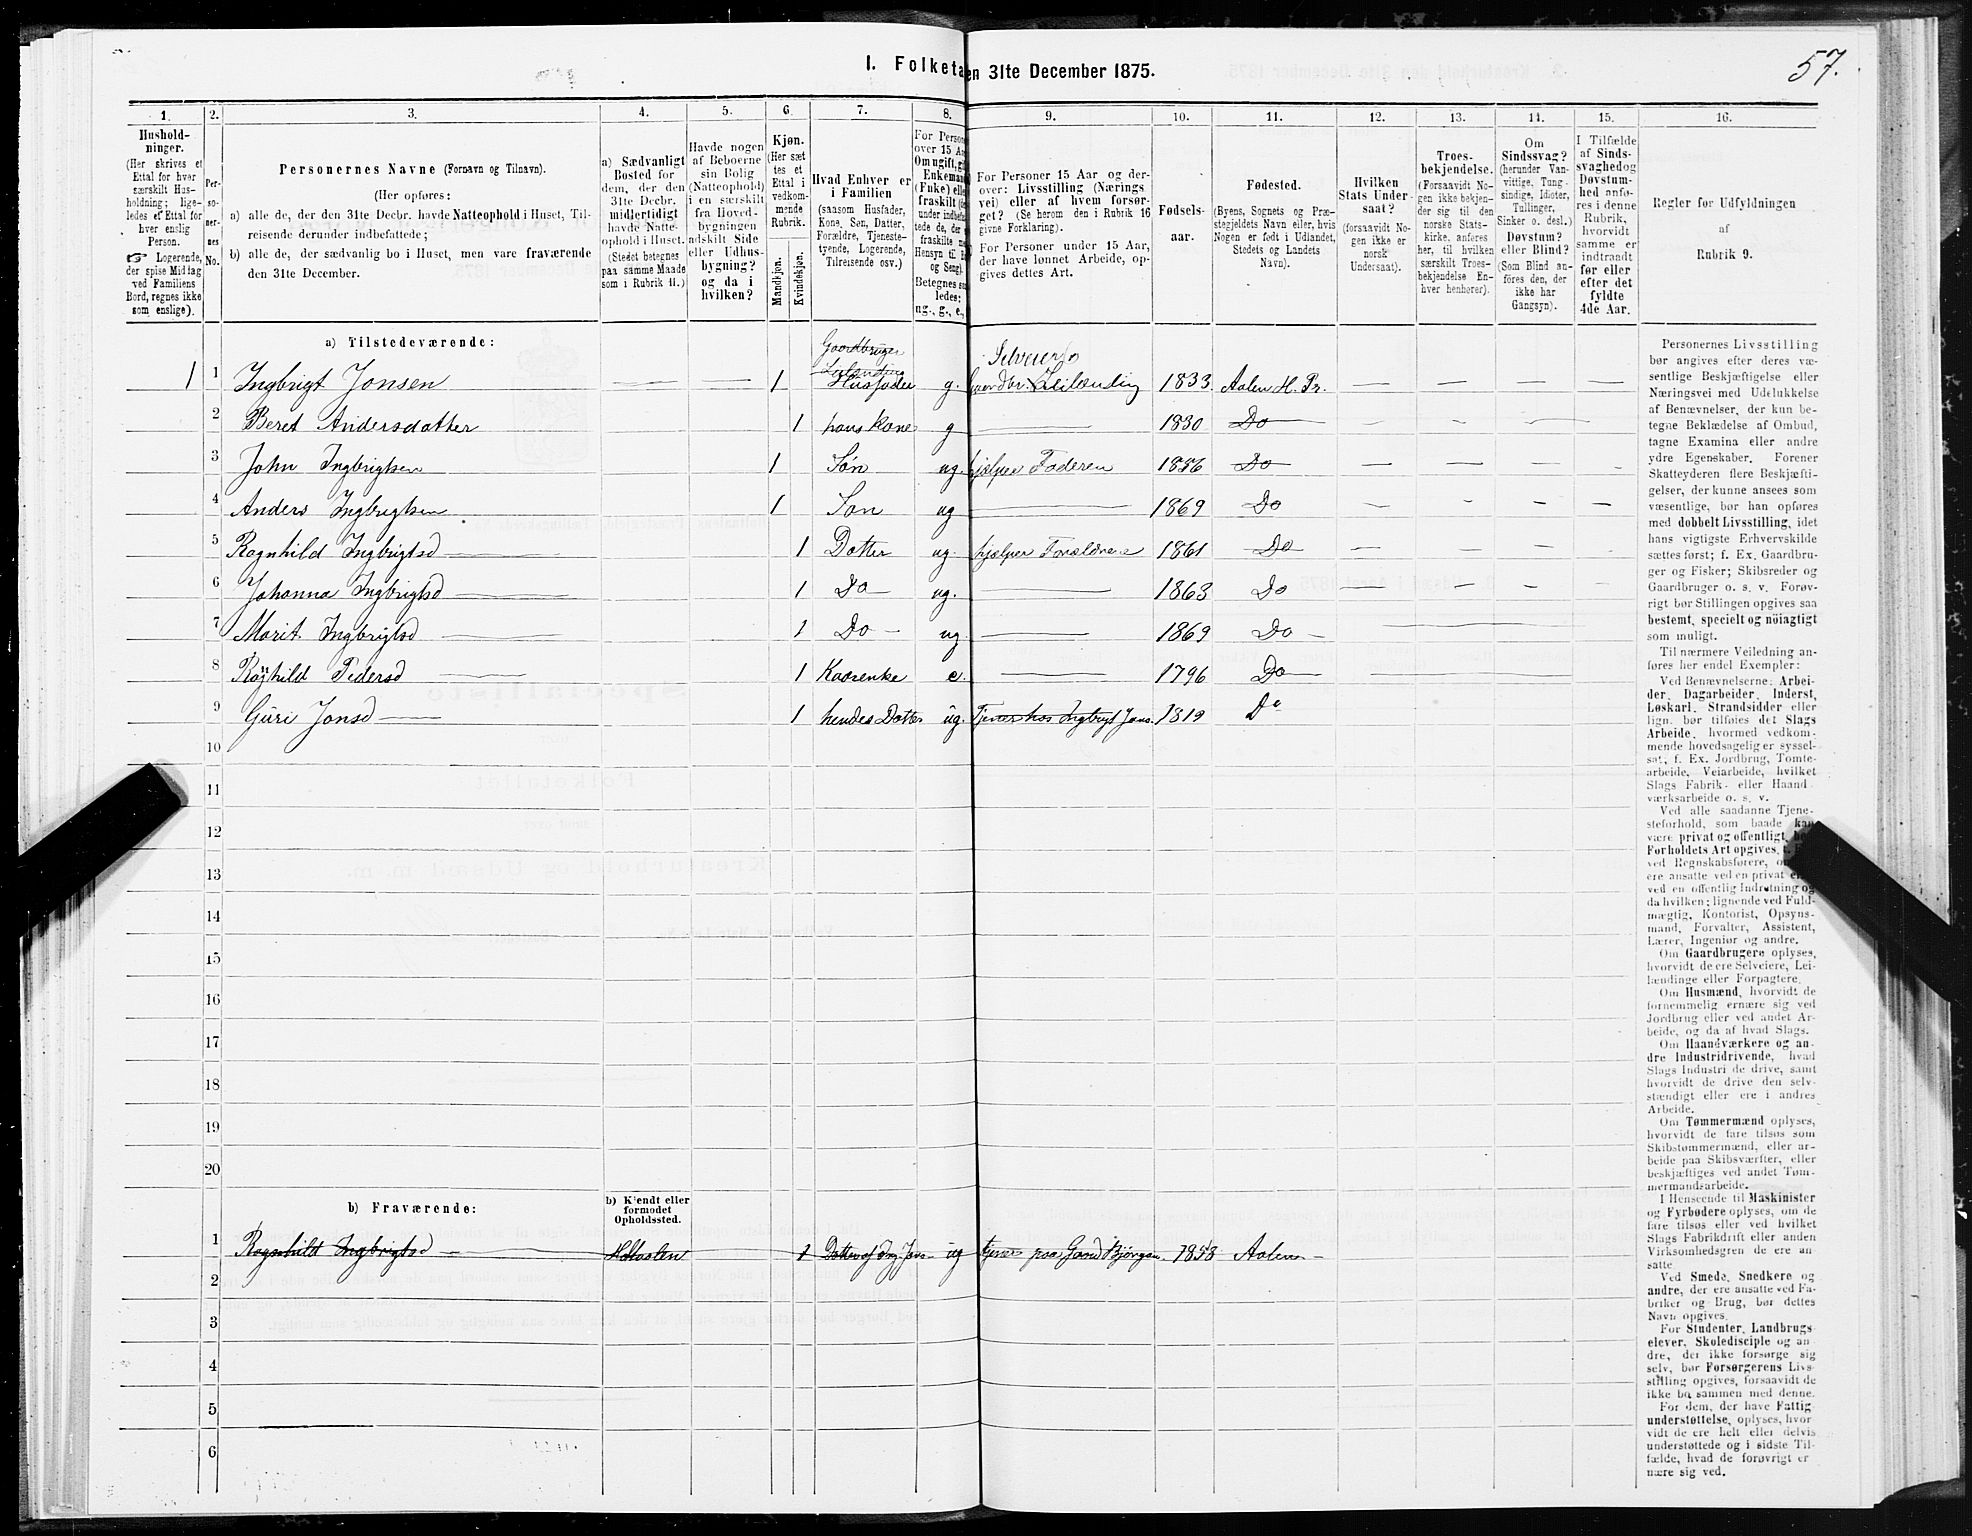 57.
I. Folketa en 31te December 1875.
1. 2. 3. 4. 5. 6. 7. 8. 9. 10. 11. 12. 13. 14. 15. 16.
Hushold-
ninger.
(Her skrives et
Ettal for hver
særskilt Hus-
holdning; lige-
ledes ef Ettal for
hver enslig
Person.
☞ Logerende,
der spise Middag
ved Familiens
Bord, regnes ikke
som enslige).
Per-
so-
ner-
nes
No.
Personernes Navne (Fornavn og Tilnavn).
(Her opføres:
a) alle de, der den 31te Decbr. havde Natteophold i Huset, Til-
reisende derunder indbefattede;
b) alle de, der sædvanlig bo i Huset, men vare fraværende
den 31te December.
a) Sædvanligt
Bosted for
dem, der den
31te Decbr.
midlertidigt
havde Natte-
ophold i Huset.
(Stedet betegnes
paa samme Maade
som i Rubrik 11.)
Havde nogen
af Beboerne
sin Bolig
(Natteophold)
i en særskilt
fra Hoved-
bygningen
adskilt Side
eller Udhus-
bygning?
og da i
hvilken?
Kjøn.
(Her sæt-
tes et
Ettal i
vedkom-
mende
Rubrik.
Mandkjøn.
Kvindekjøn.
Hvad Enhver er
i Familien
(saasom Husfader,
Kone, Søn, Datter,
Forældre, Tjeneste-
tyende, Logerende,
Tilreisende osv.)
For Person
over 15 Aa
Om ugift, gi
Enkeman
(Fuke) elle
fraskilt (
under indbefat
tede de, de
fraskilte m
Hensyn til B
og Seng).
Betegnes sa
ledes:
ug., g., e.,
For Personer 15 Aar og der-
over: Livsstilling (Nærings
vei) eller af hvem forsør-
get? (Se herom den i Rubrik 16
givne Forklaring).
For Personer under 15 Aar,
der have lønnet Arbeide, op-
gives dettes Art.
Fødsels-
aar.
Fødested.
(Byens, Sognets og Præ-
stegjeldets Navn eller, hvis
Nogen er født i Udlandet,
Stedets og Landets
Navn).
Hvilken
Stats Under-
saat?
(forsaavidt No-
gen ikke er
norsk
Undersaat).
Troes-
bekjendelse.
(Forsaavidt No-
gen ikke bekjen-
der sig til den
norske Stats-
kirke, anføres
her, til hvilken
særskilt Troes-
bekjendelse En-
hver henhører).
Om
Sindssvag?
(herunder Van-
vittige, Tung-
sindige, Idioter,
Tullinger,
Sinker o. desl.)
Døvstum?
eller Blind?
(Som Blind an-
føres den, der
ikke har
Gangsyn).
I Tilfælde
af Sinds-
svaghed og
Døvstum-
hed anfø-
res i denne
Rubrik,
hvorvidt
samme er
indtraadt
før eller
efter det
fyldte
4de Aar.
Regler før Udfyldningen
af
Rubrik 9.
a) Tilstedeværende:
Gaardbruger Selveier
1 1 Ingbrigt Jonsen 1 Husfader g. Gaardbr. Leilænding 1833. Aalen H. Pr. — — — —
2 Beret Andersdatter 1 hans Kone g — 1830 Do
3 John Ingbrigtsen 1 Søn ug. hjælper Faderen 1856 Do
4 Anders Ingbrigtsen 1 Søn ug — 1869 Do
5 Ragnhild Ingbrigtsd 1 Datter ug. hjælper Forældrene 1861 Do
6 Johanna Ingbrigtsd 1 Do ug. — 1863 Do
7 Marit Ingbrigtsd 1 Do ug. — 1869 Do
8 Raghild Pedersd 1 Kaarenke e. — 1796 Do
9 Guri Jonsd 1 hendes Datter ug. Tjener hos Ingbrigt Jons. 1819 Do
10
11
12
13
14
15
16
17
18
19
20
b) Fraværende:
b) Kjendt eller
formodet
Opholdssted.
1 Ragnhild Ingbrigtsd Holtaalen 1 Datter af Ing. Jons ug tjener paa Gaard Bjørgan. 1858 Aalen
2
3
4
5
6
Personernes Livsstilling
bør angives efter deres væ-
sentlige Beskjæftigelse eller
Næringsvei med Udelukkelse
af Benævnelser, der kun be-
tegne Beklædelse af Ombud,
tagne Examina eller andre
ydre Egenskaber. Forener
Skatteyderen flere Beskjæfti-
gelser, der kunne ansees som
væsentlige, bør han opføres
med dobbelt Livsstilling, idet
hans vigtigste Erhvervskilde
sættes først; f. Ex. Gaardbru-
ger og Fisker; Skibsreder og
Gaardbruger o. s. v. Forøv-
rigt bør Stillingen opgives saa
bestemt, specielt og nöiagtigt
som muligt.
Til nærmere Veiledning an-
føres her endel Exempler:
Ved Benævnelserne: Arbei-
der, Dagarbeider, Inderst,
Løskarl, Strandsidder eller
lign. bør tilføies det Slags
Arbeide, hvormed vedkom-
mende hovedsagelig er syssel-
sat; f. Ex. Jordbrug, Tomte-
arbeide, Veiarbeide, hvilket
Slags Fabrik- eller Haand-
værksarbeide o. s. v.
Ved alle saadanne Tjene-
steforhold, som baade kan
være privat og offentligt, bør
Forholdets Art opgives,
ved Regnskabsførere, om
ere ansatte ved en privat el
ved en offentlig Indretning og
da hvilken; lignende ved Fuld-
mægtig, Kontorist, Opsyns-
mand, Forvalter, Assistent,
Lærer, Ingeniør og andre.
Om Gaardbrugere oplyses,
hvorvidt de ere Selveiere, Lei-
lændinge eller Forpagtere.
Om Husmænd, hvorvidt de
fornemmelig ernære sig ved
Jordbrug eller ved andet Ar-
beide, og da af hvad Slags.
Om Haandværkere og an-
dre Industridrivende, hvad
Slags Industri de drive, samt
hvorvidt de drive den selv-
stændigt eller ere i andres
Arbeide.
Om Tømmermænd oplyses,
hvorvidt de fare tilsøs som
Skibstømmermænd, eller ar-
beide paa Skibsværfter, eller
beskjæftiges ved andet Tøm-
mermandsarbeide.
I Henseende til Maskinister
og Fyrbødere oplyses, om de
fare tilsøs eller ved hvilket
Slags Fabrikdrift eller anden
Virksomhedsgren de ere an-
satte
Ved Smede, Snedkere og
andre, der ere ansatte ved Fa-
briker og Brug, bør dettes
Navn opgives.
For Studenter, Landbrugs-
elever, Skoledisciple og an-
dre, der ikke forsørge sig
selv, bør Forsørgerens Livs-
stilling opgives, forsaavidt de
ikke bo sammen med denne.
For dem, der have Fattig-
understøttelse, oplyses, hvor-
vidt de ere helt eller delvis
understøttede og i sidste Til-
fælde, hvad de forøvrigt er-
nære sig ved.